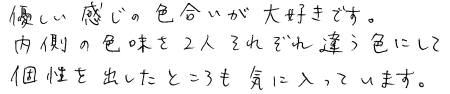 優しい感じの色合いが大好きです。
内側の色味を2人それぞれ違う色にして
個性を出したところも気に入っています。